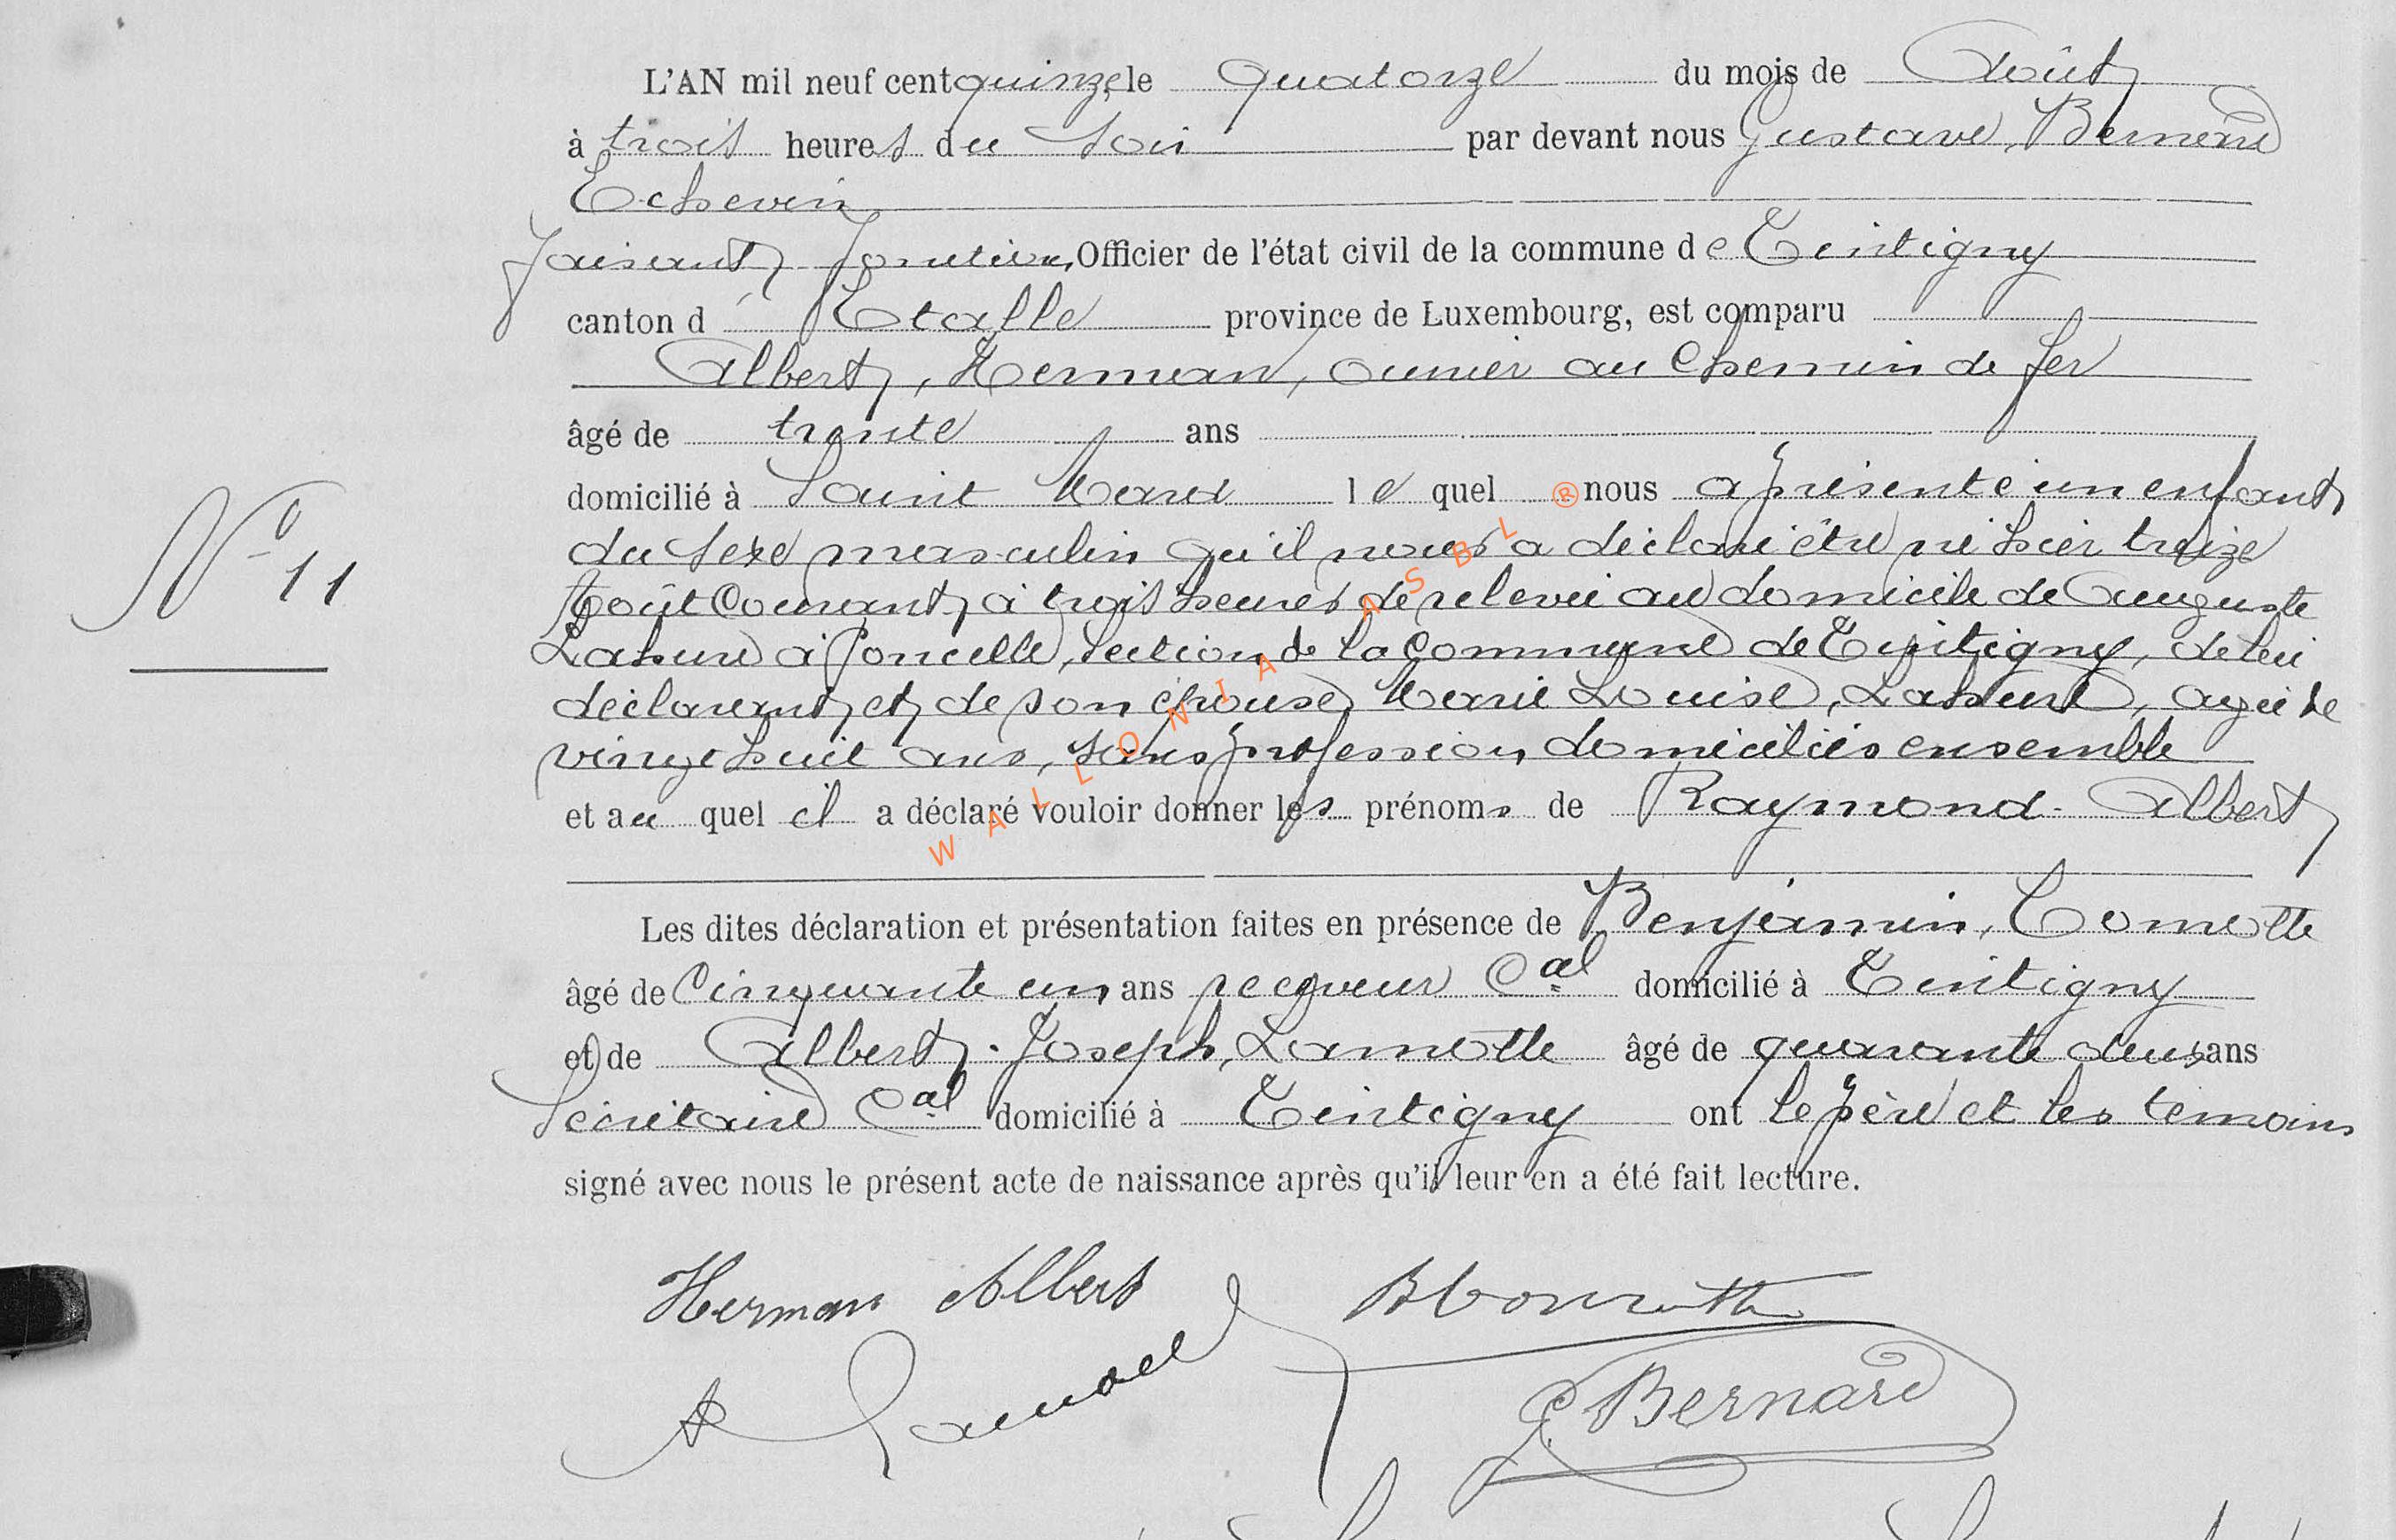 L'AN mil neuf cent quinze, le quatorze du mois de Août
à trois heures du soir par devant nous Gustave, Bernard
Echevin
faisant fonction, Officier de l'état civil de la commune de Tintigny
canton d'Etalle province de Luxembourg, est comparu
Albert, Herman, ouvrier au Chemin de fer
âgé de trente ans
domicilié à Saint Mard le quel nous a présenté un enfant
du sexe masculin qu'il nous a déclaré être né hier treize
N° 11
Août Courant, à trois heures de relevée au domicile de Auguste
Lahure à Poncelle, section de la Commune de Tintigny, de lui
déclarant, et de son épouse Marie Louise, Lahure, agée de
vingt huit ans, sans profession, domiciliés ensemble
et au quel il a déclaré vouloir donner les prénoms de Raymond - Albert
Les dites déclaration et présentation faites en présence de Benjamin,
âgé de Cinquante un ans receveur Cal domicilié à Tintigny
et de Albert - Joseph, Lamotte âgé de quarante deux ans
Secrétaire Cal domicilié à Tintigny ont le père et les témoins
signé avec nous le présent acte de naissance après qu'il leur en a été fait lecture.
Herman Albert
G. Bernard
WALLONIA ASBL ®